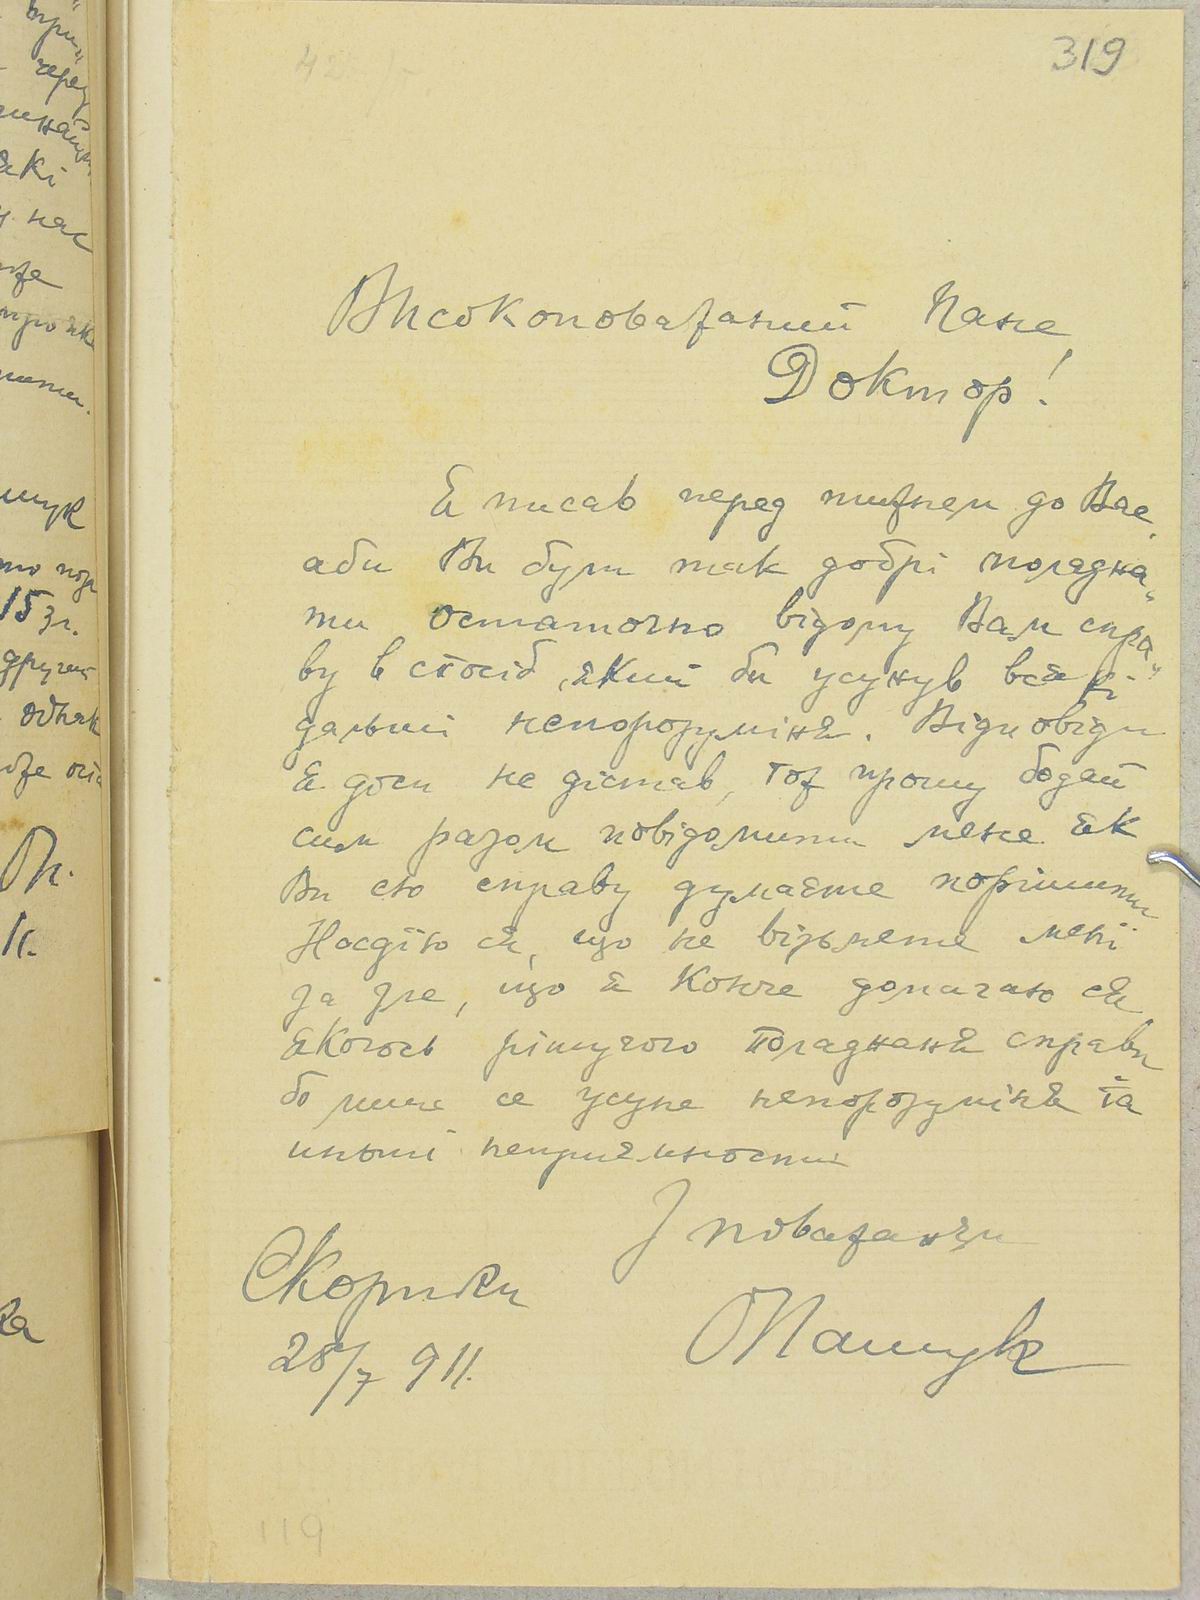 319
Високоповажаний Пане
Доктор!
Я писав перед тижнем до Вас
аби Ви були так добрі поладна„
ти остаточно відому Вам спра„
ву в спосіб, який би усунув всякі
дальші непорозуміня. Відповіди
я доси не дістав, тож прошу бодай
сим разом повідомити мене як
Ви сю справу думаєте порішити
Надїю ся, що не візьмете мені
за зле, що я конче домагаю ся
якогось рішучого поладнаня справи
бо лише се усуне непорозуміня та
иньші неприємности
З поважаням
Скорики
28/7 911.
ОПашук
119